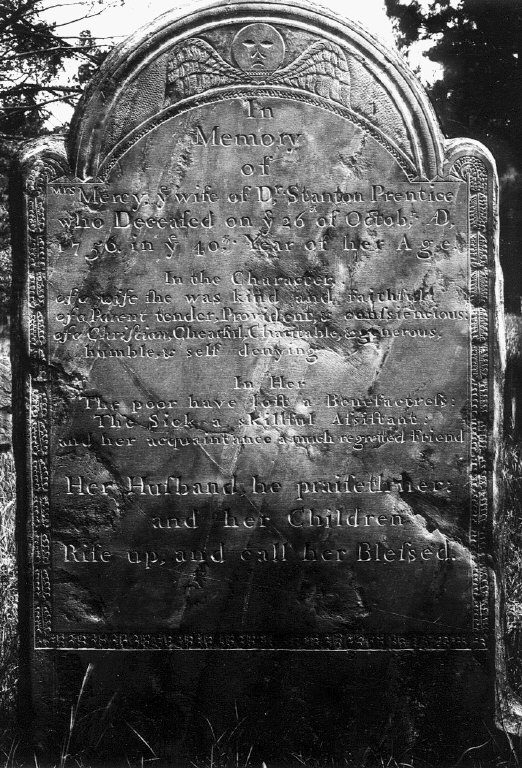 In
Memory
of
Mrs Mercy, ye wife of Dr. Stanton Prentice
who Deceaſed on ye 26 of Octobr. D,
1756. in ye 40th Year of her Age.
In the Character
of a wife ſhe was kind and faithfull
of a Parent tender, Provident, & conſiencious:
of a Chriſtian, Chearful, Charitable, & generous,
humble & self denying.
In Her
The poor have loſt a Benefactreſs:
The Sick a skillful Aſsiſtant:
and her acquaintance a much regretted Friend
Her Huſband he praiſeth her;
and her Children
Riſe up, and call her Bleſsed.